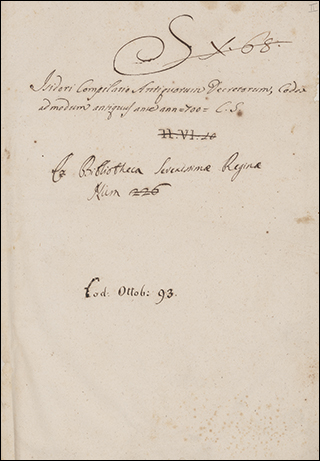 S X. 68.
Isidori Compilatio Antiquorum Decretorum, Codex
admodum antiquus ante ann=700= C.S.
N.VI.20
Ex Bibliotheca Serenissimæ Reginæ
Num 226
Cod: Ottob: 93.